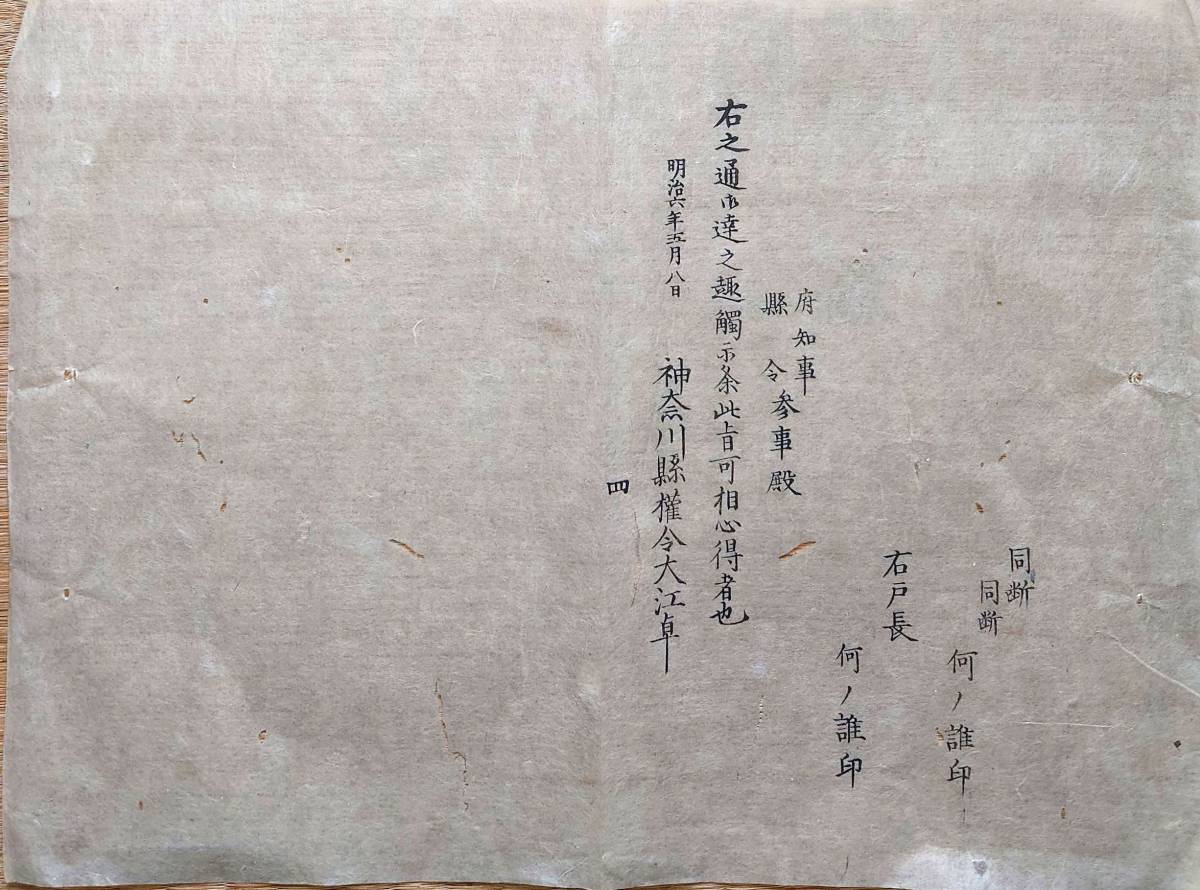 同断
同断
何ノ誰印
右戸長
何ノ誰印
府知事
縣令参事殿
右之通御達之趣觸示条此旨可相心得者也
明治六年五月八日
神奈川縣權令大江卓
四